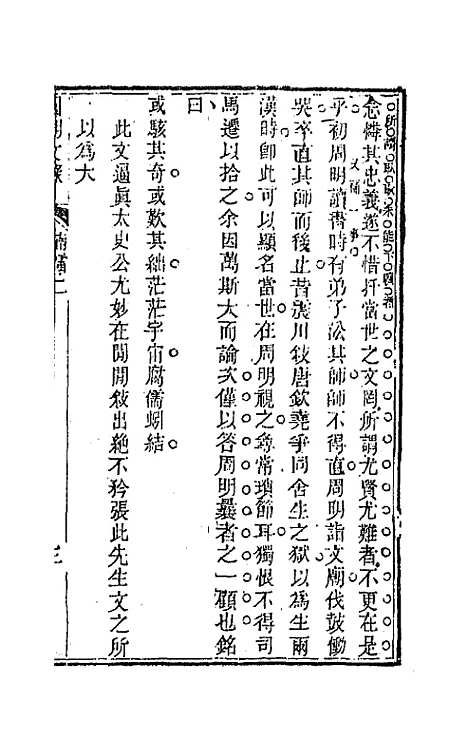 念憐其忠義遂不惜扞當世之文罔所謂尤賢尤難者不更在是
又補一事
乎初周明讀書時有弟子訟其師師不得直周明詣文廟伐鼓慟
哭卒直其師而後止昔震川敘唐欽堯爭同舍生之獄以為生兩
漢時卽此可以顯名當世在周明視之尋常瑣節耳獨恨不得司
馬遷以拾之余因萬斯大而論次僅以答周明曩者之一顧也銘
曰
或駭其奇或歎其絀茫茫宇宙腐儒蚓結
此文逼眞太史公尤妙在閒閒敘出絶不矜張此先生文之所
以為大
文錄
二
三